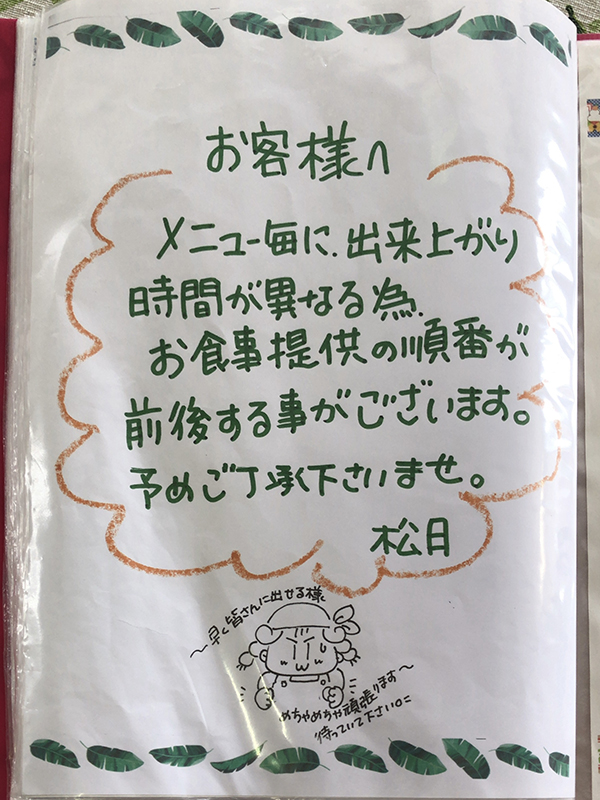 お客様へ
メニュー毎に、出来上がり
時間が異なる為、
お食事提供の順番が
前後する事がございます。
予めご了承下さいませ。
松月
〜早く皆さんに出せる様
めちゃめちゃ頑張ります〜
待っていて下さい